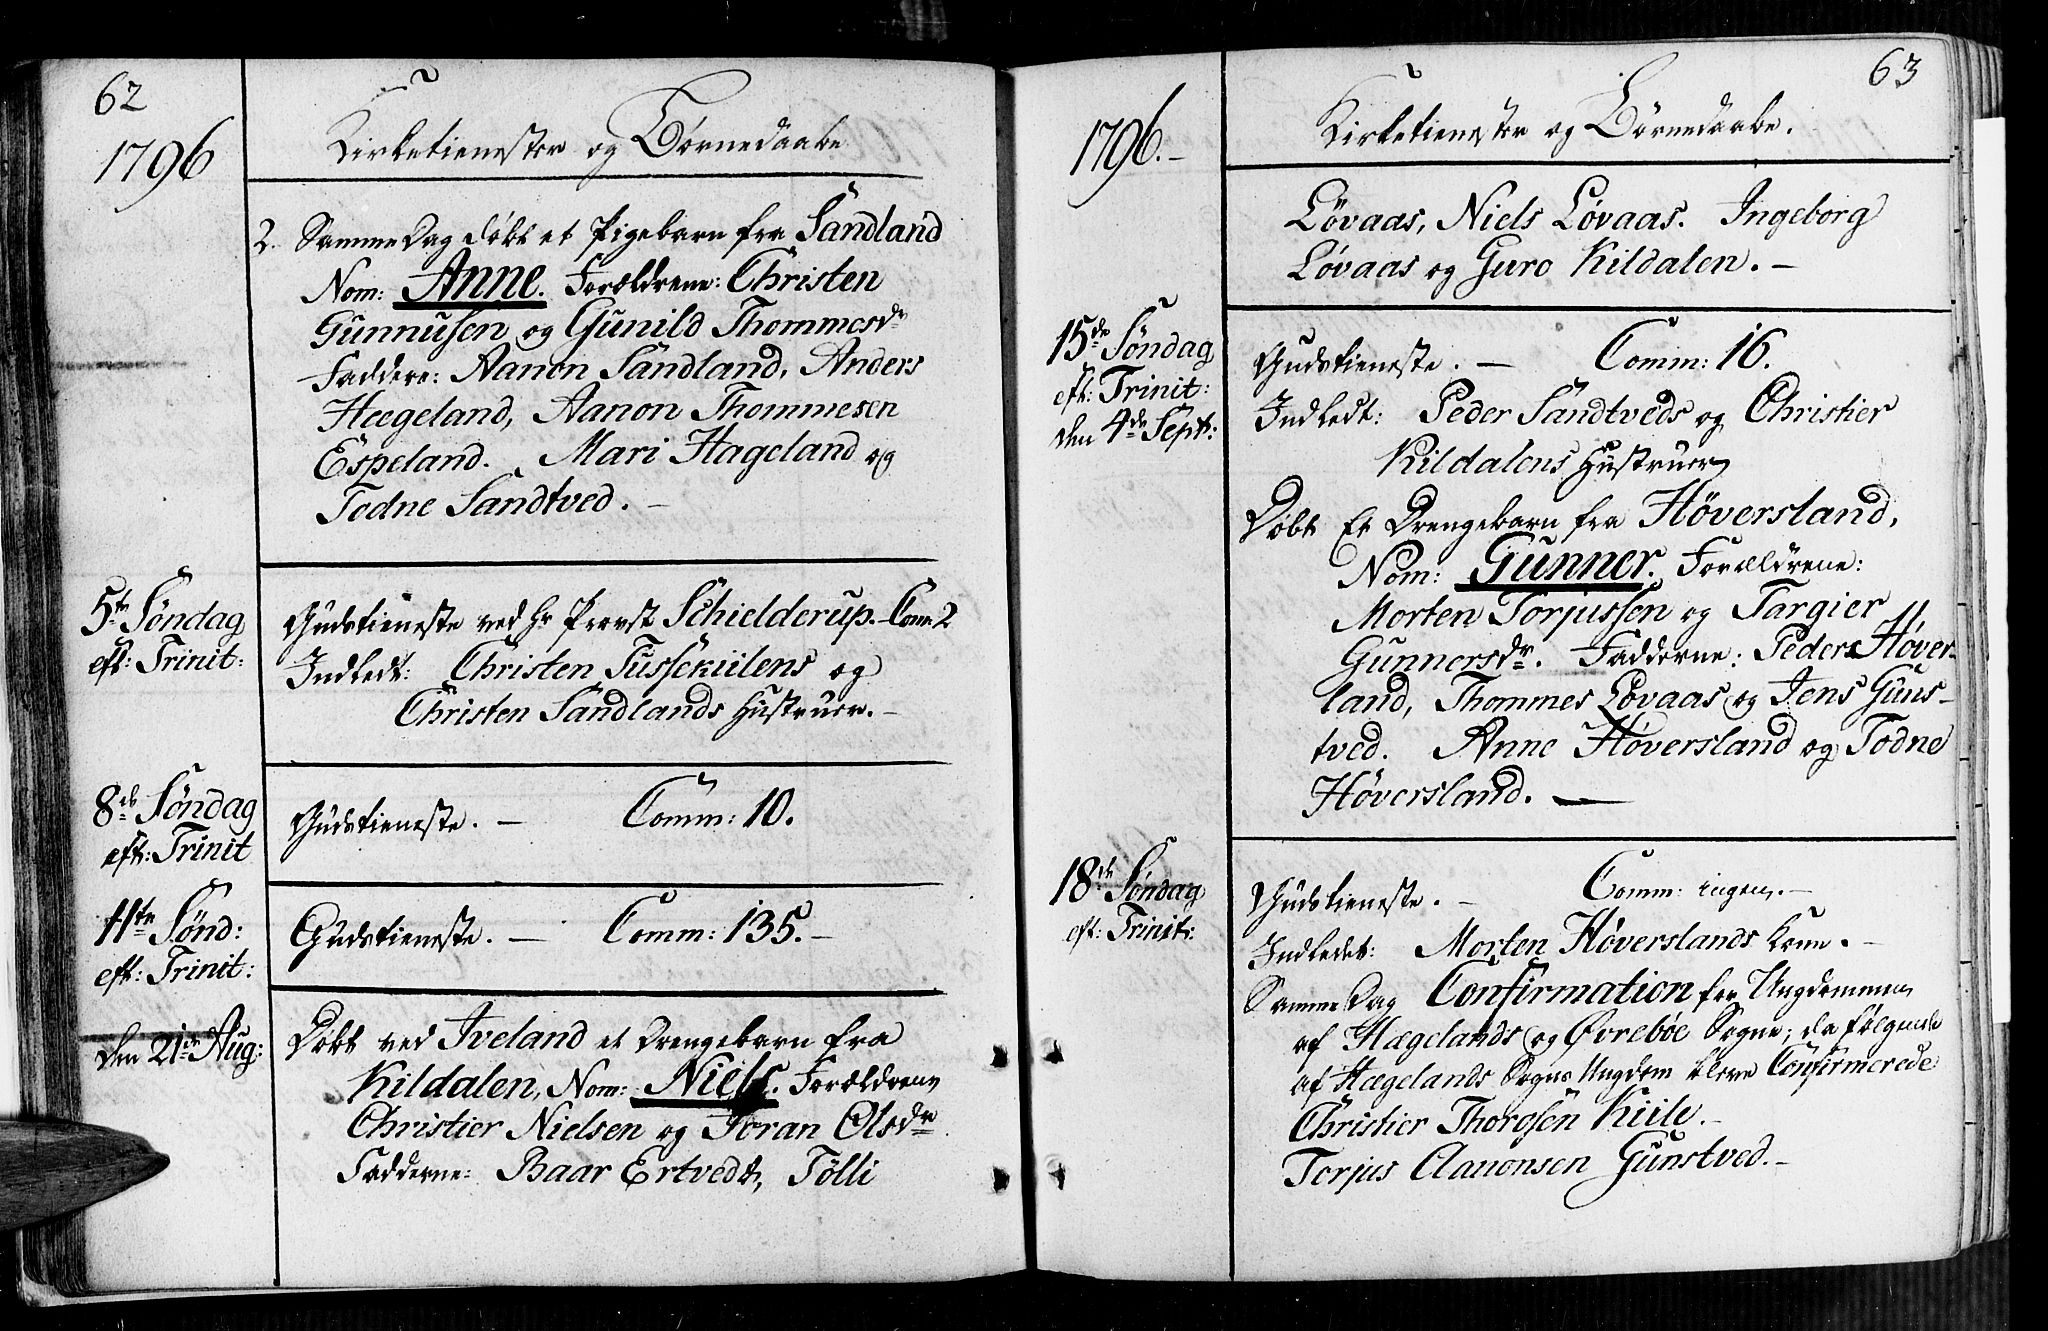 62
1796
Kirketienester og Börnedaabe
2. Samme Dag döbt et Pigebarn fra Sandland
Nom: Anne. Forældrene: Christen
Gunnusen og Gunild Thommesdr
Faddere: Aanon Sandland, Anders
Hægeland, Aanon Thommesen
Espeland. Mari Hageland og
Todne Sandtved. –
5te Søndag
eft: Trinit:
Gudstieneste ved Hr Provst Schielderup. – Com: 2
Indledt: Christen Tussekiilens og
Christen Sandlands Hustruer. –
8de Søndag
eft: Trinit
Gudstieneste. – Comm: 10.
11te Sønd:
eft: Trinit:
Gudstieneste. – Comm: 135. –
den 21de Aug:
Döbt ved Iveland et Drengebarn fra
Kildalen, Nom: Niels. Forældrene
Christier Nielsen og Joran Olsdr
Fadderne: Baar Ertvedt, Tölli
63
1796. –
Kirketienester og Börnedaabe.
Lövaas, Niels Lövaas. Ingeborg
Lövaas og Guro Kildalen. –
15de Søndag
eft: Trinit:
den 4de Sept:
Gudstieneste. – Comm: 16.
Indledt: Peder Sandtveds og Christier
Kildalens Hustruer
Döbt Et Drengebarn fra Höversland,
Nom: Gunner. Forældrene:
Morten Torjussen og Targier
Gunnersdr. Fadderne: Peder Höver-
land, Thommes Lovaas og Jens Guns-
tved. Anne Höversland og Todne
Höversland. –
18de Søndag
eft: Trinit:
Gudstieneste. – Comm: ingen. –
Indledet: Morten Höverslands Kone. –
Samme Dag Confirmation for Ungdommen
af Hægelands og Øvrebøe Sogne; da følgende
af Hægelands Sogns Ungdom bleve Confirmerede
Christier Thorosen Kiile. –
Torjus Aanonsen Gunstved. –